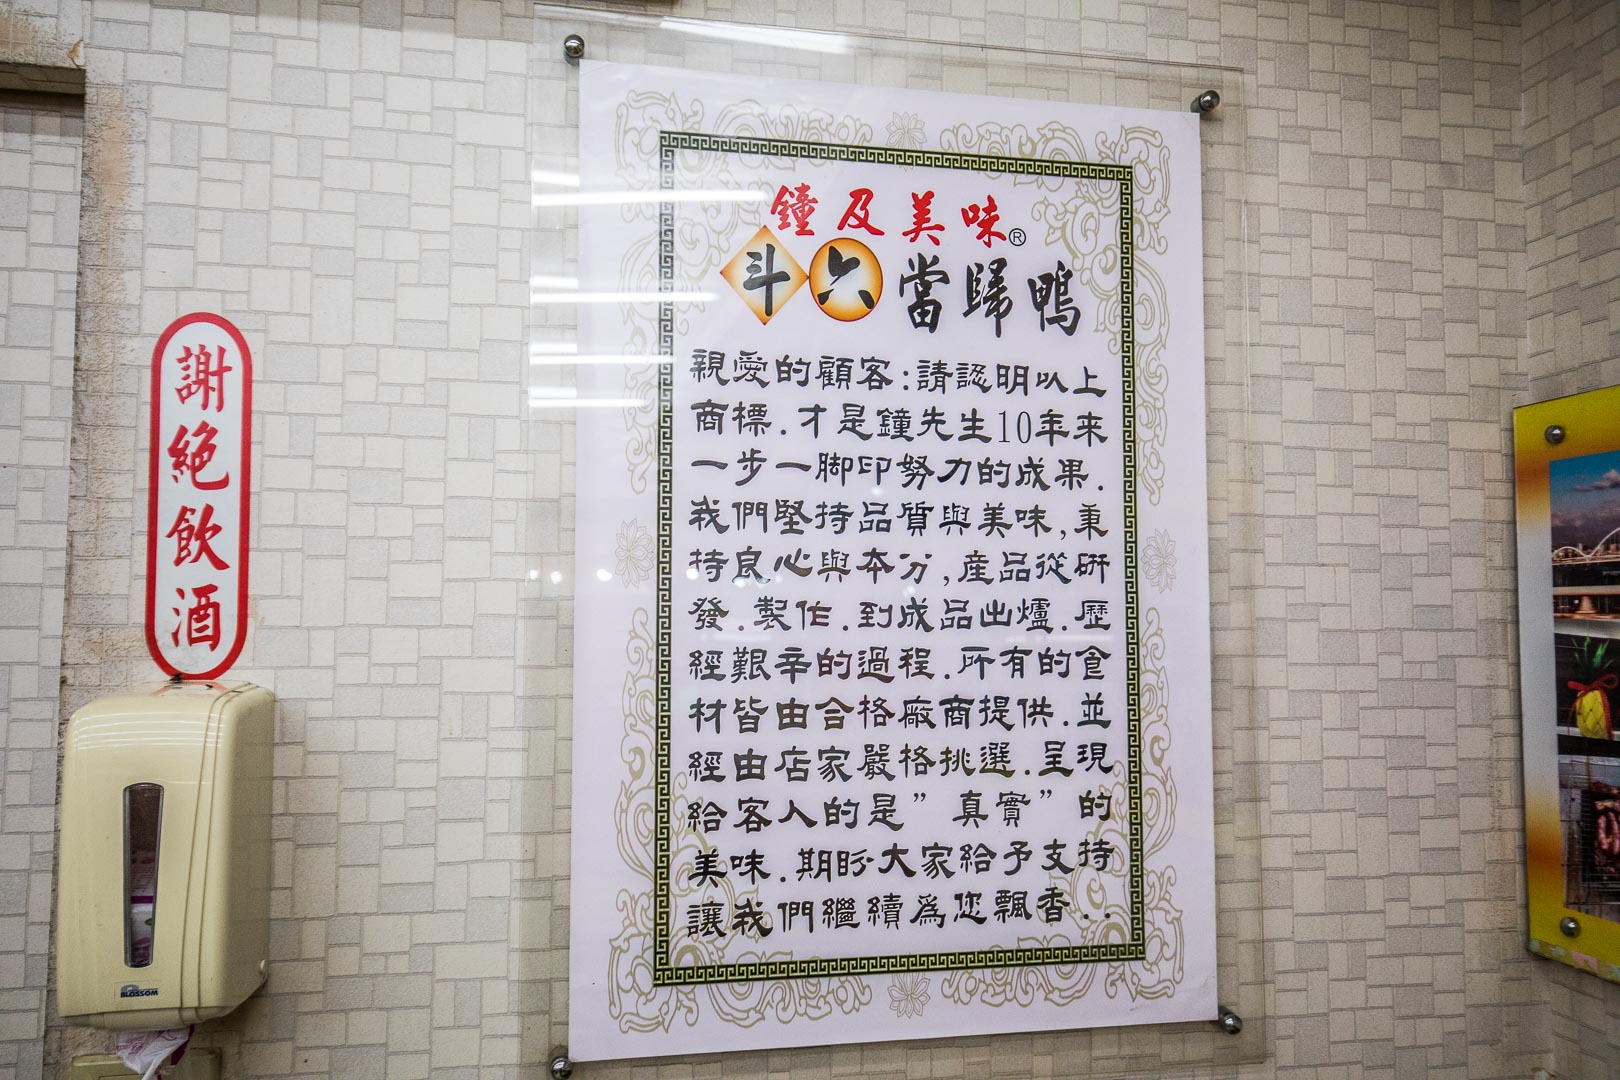 謝絕飲酒
BLOSSOM
鐘及美味®
斗六當歸鴨
親愛的顧客:請認明以上
商標.才是鐘先生10年來
一步一腳印努力的成果.
我們堅持品質與美味,秉
持良心與本分,產品從研
發.製作.到成品出爐.歷
經艱辛的過程.所有的食
材皆由合格廠商提供.並
經由店家嚴格挑選.呈現
給客人的是”真實”的
美味.期盼大家給予支持
讓我們繼續為您飄香..